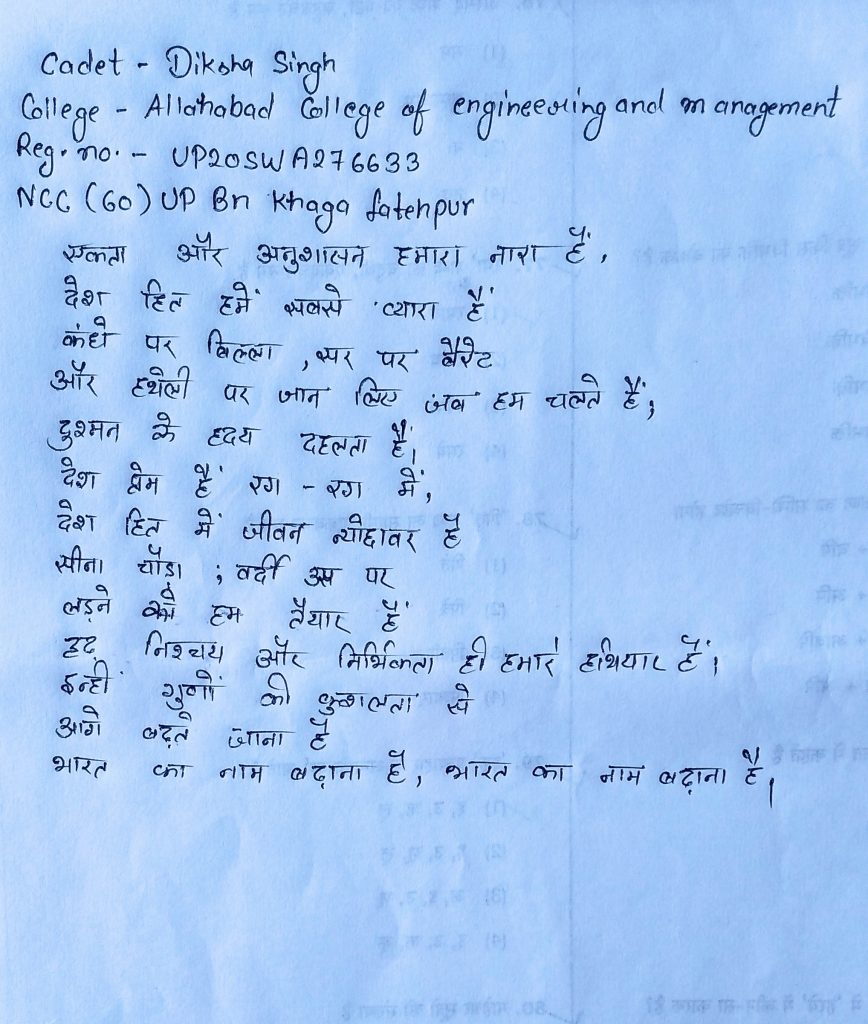 Cadet - Diksha Singh
College - Allahabad College of engineering and management
Reg. no. - UP20SWA276633
NCC (60) UP Bn Khaga fatehpur
एकता और अनुशासन हमारा नारा हैं,
देश हित हमें सबसे प्यारा हैं
कंधे पर बिल्ला, सर पर बैरेट
और हथेली पर जान लिए जब हम चलते हैं,
दुश्मन के हृदय दहलता हैं,
देश प्रेम हैं रग - रग में,
देश हित में जीवन न्योछावर हैं
सीना चौड़ा ; वर्दी उस पर
लड़ने को हम तैयार हैं
दृढ़ निश्चय और निर्भिकता ही हमारे हथियार हैं।
इन्हीं गुणों की कुशलता से
आगे बढ़ते जाना हैं
भारत का नाम बढ़ाना हैं, भारत का नाम बढ़ाना हैं।